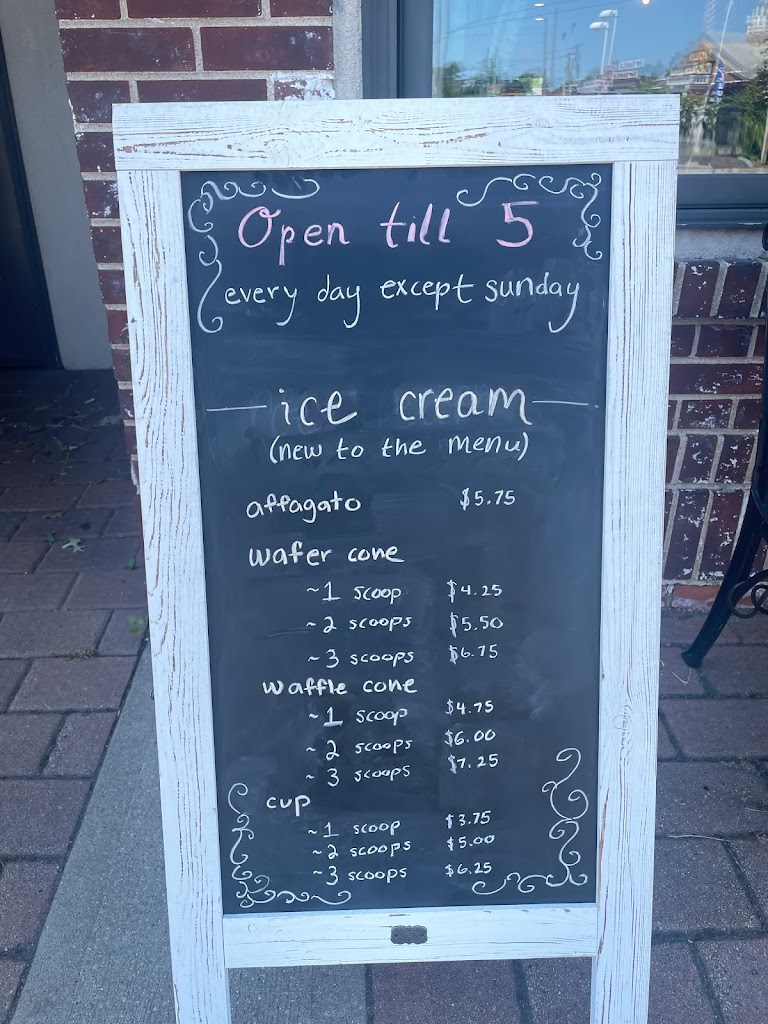 Open till 5
every day except sunday
ice cream
(new to the menu)
affagato $5.75
wafer cone
~1 scoop $4.25
~2 scoops $5.50
~3 scoops $6.75
waffle cone
~1 scoop $4.75
~2 scoops $6.00
~3 scoops $7.25
cup
~1 scoop $3.75
~2 scoops $5.00
~3 scoops $6.25